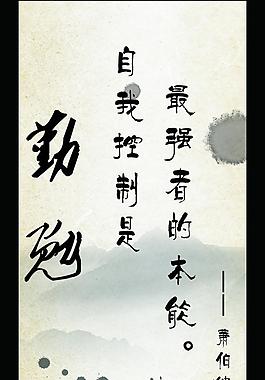 勤勉
自我控制是
最强者的本能。
——萧伯